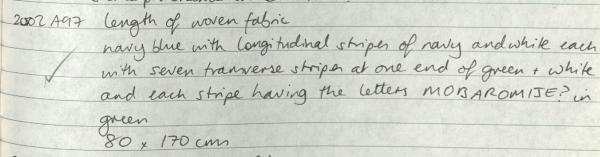 2002 A97 length of woven fabric
navy blue with longitudinal stripes of navy and white each
with seven tranverse stripes at one end of green + white
and each stripe having the letters MOBAROMIJE? in
green
80 x 170 cms